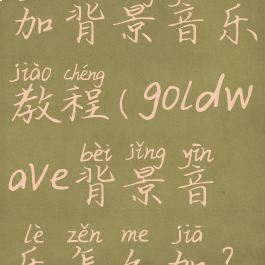 加背景音乐
jiào chéng
教程(goldw
bèi jǐng yīn
ave背景音
lè zěn me jiā
乐怎么加?